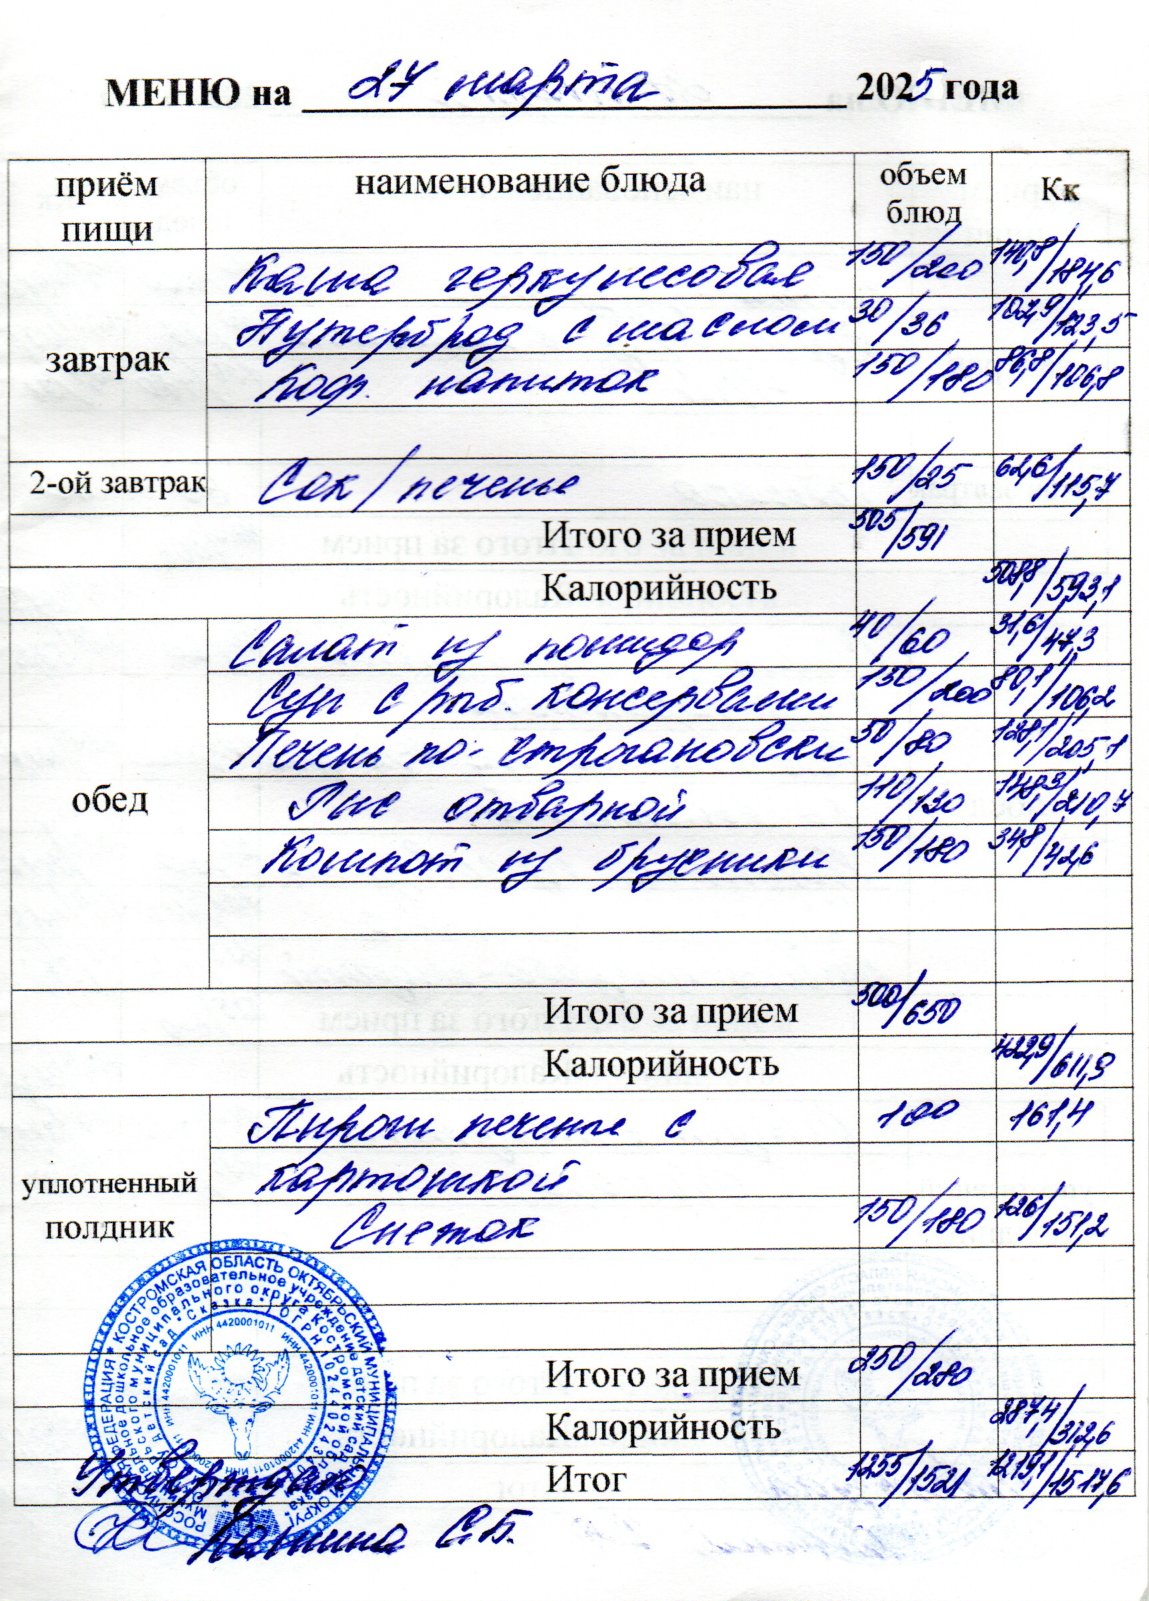 МЕНЮ на 27 марта 2025 года
приём пищи наименование блюда объем блюд Кк
завтрак
Каша геркулесовая 150/200 140,8/184,6
Бутерброд с маслом 30/36 102,9/123,5
Коф. напиток 150/180 86,8/106,8
2-ой завтрак Сок/печенье 150/25 62,6/115,7
Итого за прием 505/591
Калорийность 508,8/593,1
обед
Салат из помидор 40/60 31,6/47,3
Суп с рыб. консервами 150/200 80,1/106,2
Печень по-строгановски 50/80 128,1/205,1
Рис отварной 110/130 148,3/210,7
Компот из брусники 150/180 34,8/42,6
Итого за прием 500/650
Калорийность 422,9/611,9
уплотненный полдник
Пироги печеные с 100 161,4
картошкой
Снежок 150/180 126/151,2
Итого за прием 250/280
Калорийность 287,4/312,6
Итог 1255/1521 1219,1/1517,6
РОССИЙСКАЯ ФЕДЕРАЦИЯ * КОСТРОМСКАЯ ОБЛАСТЬ ОКТЯБРЬСКИЙ МУНИЦИПАЛЬНЫЙ ОКРУГ
дошкольное образовательное учреждение детский сад
муниципального округа Костромской области
детский сад "Сказка"
ИНН 4420001011 ИНН 4420001011
Утверждаю
С.Б.